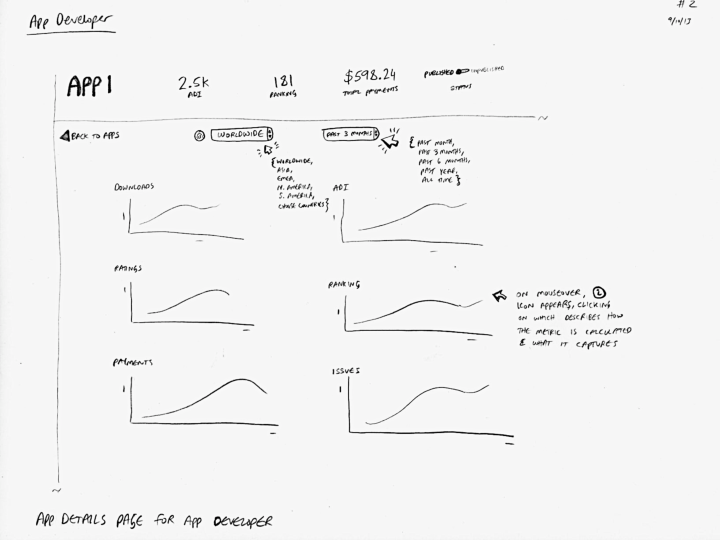 App Developer
# 2
9/14/13
APP 1
2.5k
ADI
181
RANKING
$598.24
TOTAL PAYMENTS
PUBLISHED UNPUBLISHED
STATUS
BACK TO APPS
WORLDWIDE
PAST 3 MONTHS
{ WORLDWIDE,
ASIA,
EMEA,
N. AMERICA,
S. AMERICA,
CHOOSE COUNTRIES }
{ PAST MONTH,
PAST 3 MONTHS,
PAST 6 MONTHS,
PAST YEAR,
ALL TIME }
DOWNLOADS
ADI
RATINGS
RANKING
ON MOUSEOVER,
ICON APPEARS, CLICKING
ON WHICH DESCRIBES HOW
THE METRIC IS CALCULATED
& WHAT IT CAPTURES
PAYMENTS
ISSUES
APP DETAILS PAGE FOR APP DEVELOPER